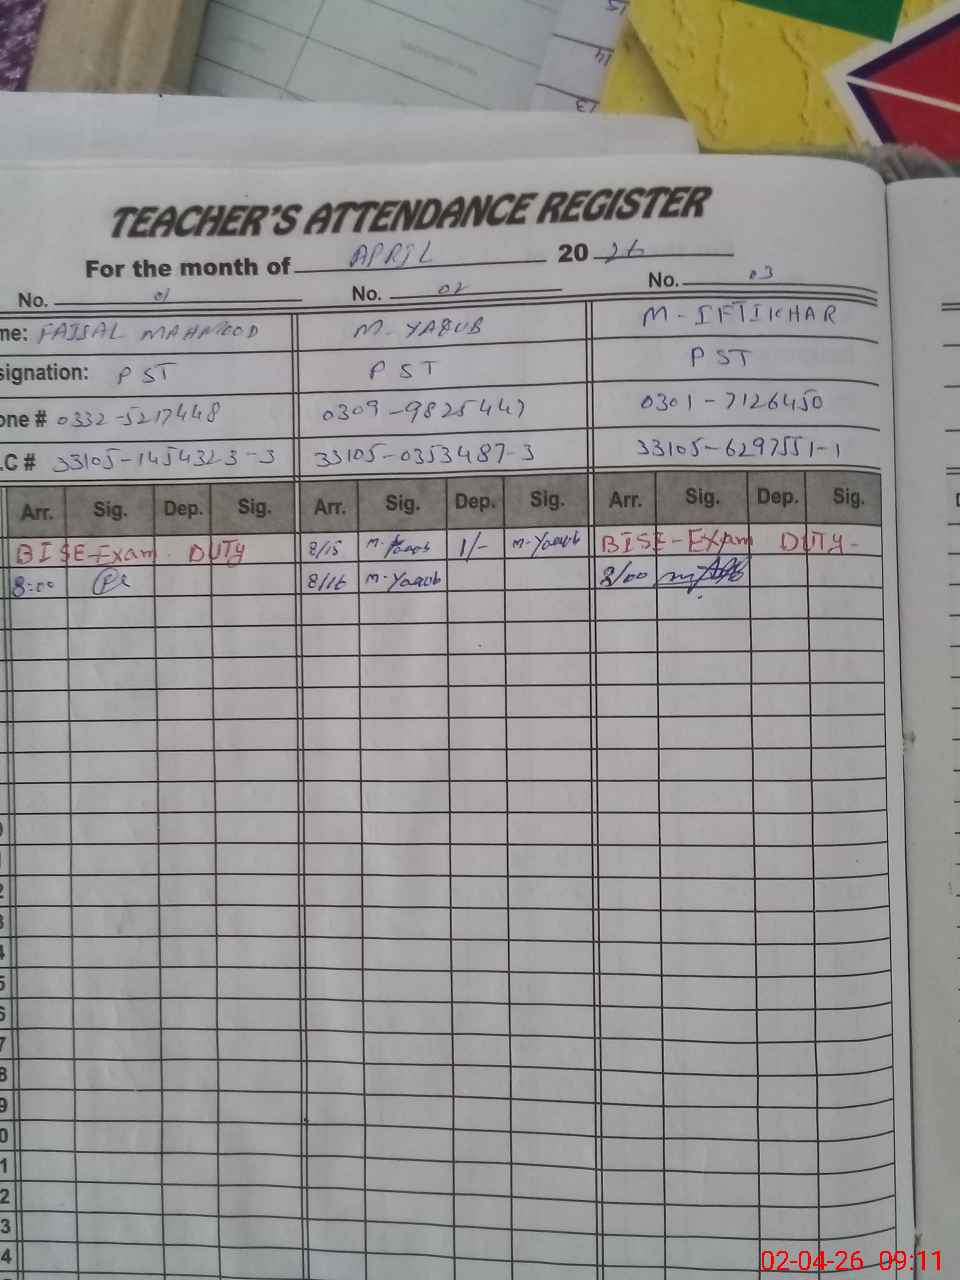 15
14
13
TEACHER'S ATTENDANCE REGISTER
For the month of APRIL 20 26
No. 01 No. 02 No. 03
me: FAISAL MAHMOOD M-YAQUB M-IFTIKHAR
signation: PST PST PST
one # 0332-5217448 0309-9825447 0301-7126450
.C # 33105-1454323-3 33105-0353487-3 33105-6297551-1
Arr. Sig. Dep. Sig. Arr. Sig. Dep. Sig. Arr. Sig. Dep. Sig.
BISE-Exam. DUTY 8/15 M-Yaqob 1/- M-Yaqub BISE-Exam DUTY-
8:00 8/16 M-Yaqub 8/00
0
1
2
3
4
5
6
7
8
9
0
1
2
3
4
02-04-26 09:11